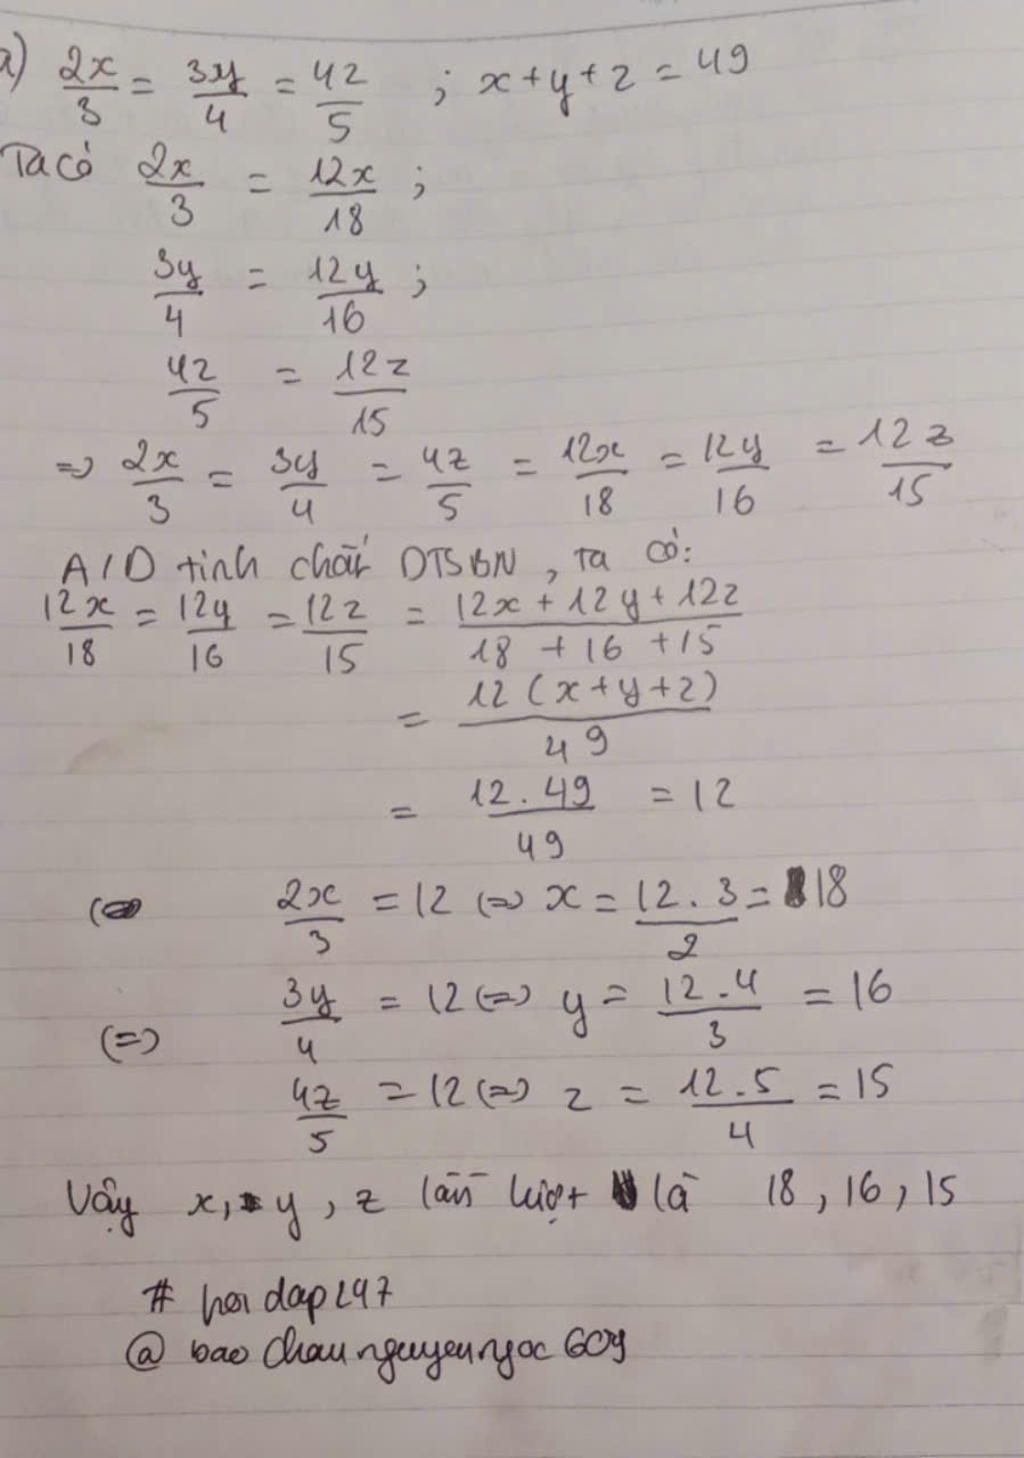 a) 2x/3 = 3y/4 = 4z/5 ; x+y+z = 49
Ta có 2x/3 = 12x/18 ;
3y/4 = 12y/16 ;
4z/5 = 12z/15
=> 2x/3 = 3y/4 = 4z/5 = 12x/18 = 12y/16 = 12z/15
A/D tính chất DTSBN, ta có:
12x/18 = 12y/16 = 12z/15 = (12x + 12y + 12z)/(18 + 16 + 15)
= 12(x+y+z)/49
= 12.49/49 = 12
2x/3 = 12 (=) x = 12.3/2 = 18
(=) 3y/4 = 12 (=) y = 12.4/3 = 16
4z/5 = 12 (=) z = 12.5/4 = 15
Vậy x, y, z lần lượt là 18, 16, 15
# hoidap247
@ baochaunguyenngoc609